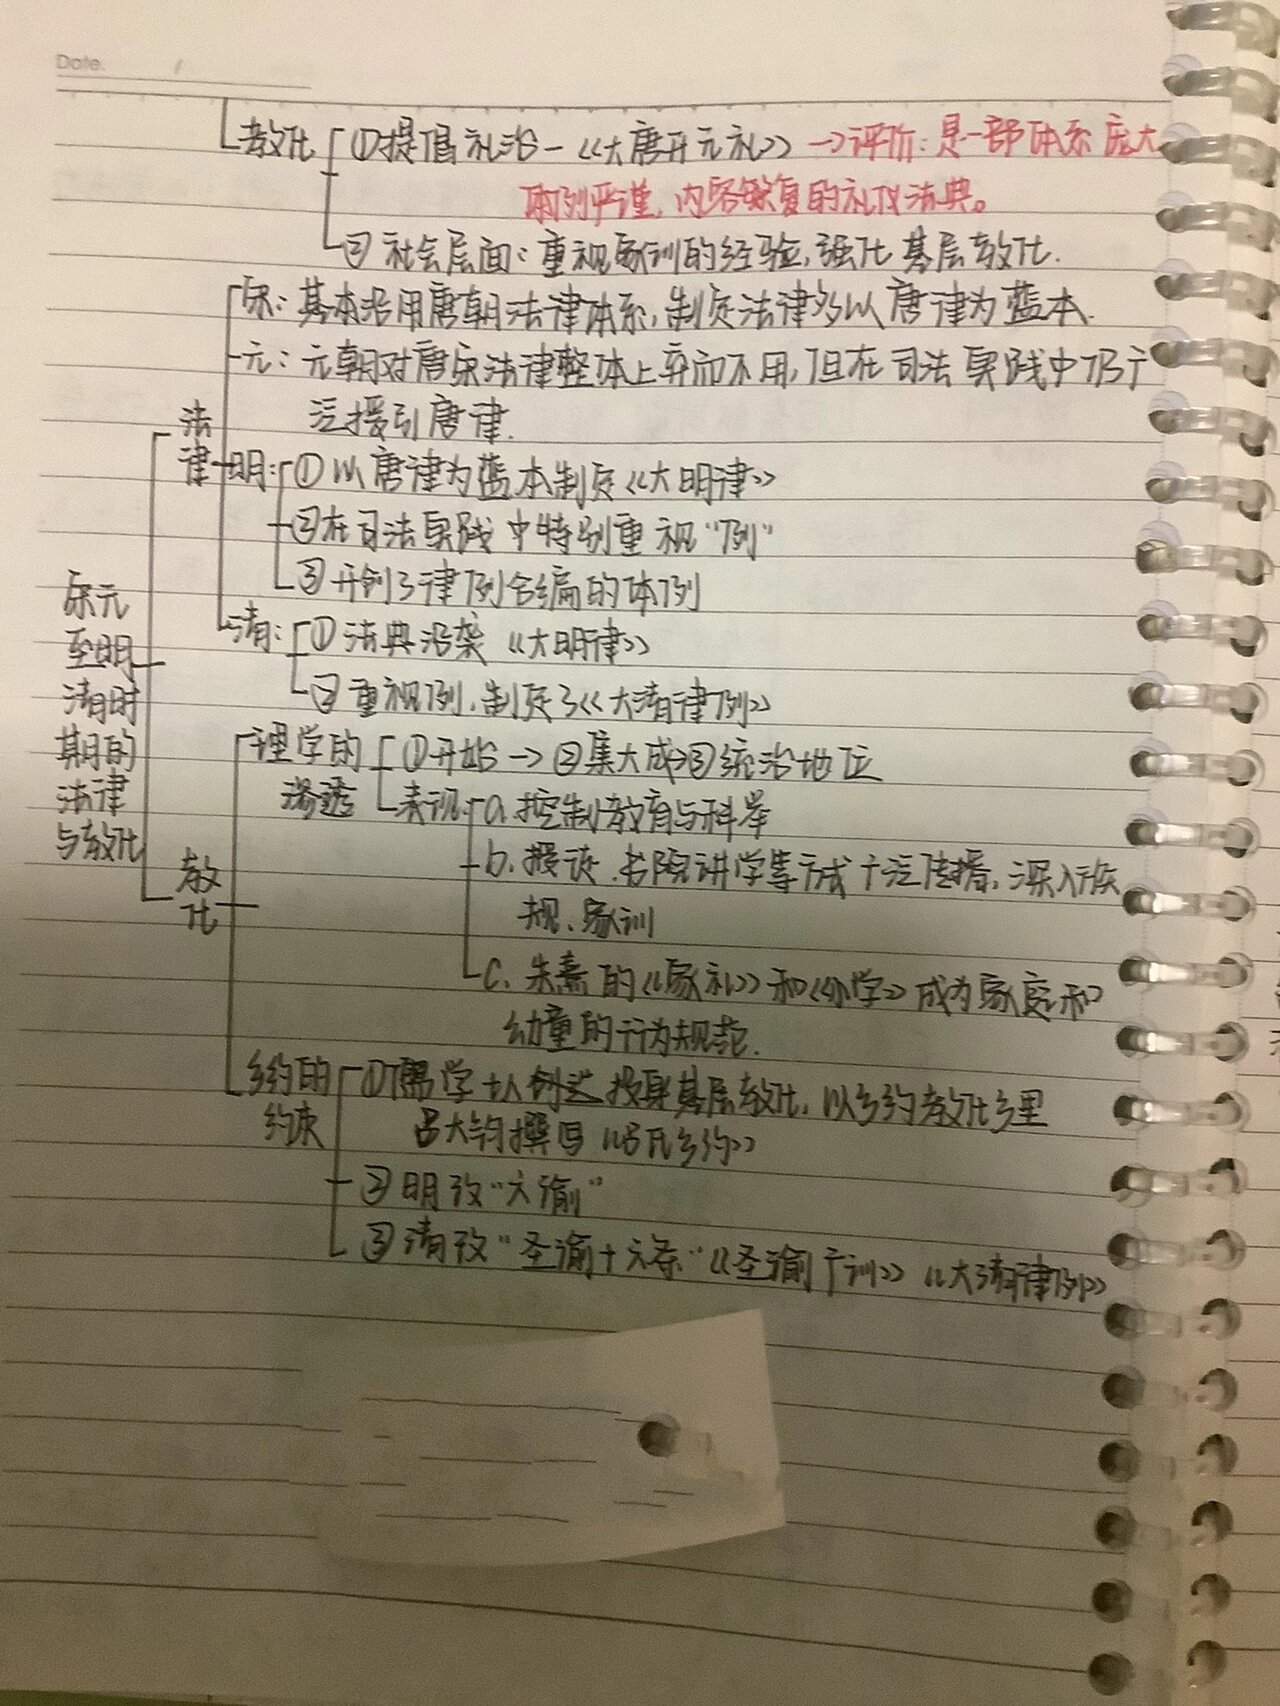 Date. /
教化 ①提倡礼治－《大唐开元礼》→评价：是一部体系庞大
体例严谨，内容繁复的礼仪法典。
②社会层面：重视家训的经验，强化基层教化.
宋：基本沿用唐朝法律体系，制定法律多以唐律为蓝本.
元：元朝对唐宋法律整体上弃而不用，但在司法实践中仍广
泛援引唐律.
法律
明：①以唐律为蓝本制定《大明律》
②在司法实践中特别重视“例”
③开创了律例合编的体例
清：①法典沿袭《大明律》
②重视例，制定了《大清律例》
宋元
至明
清时
期的
法律
与教化
教化
理学的
渗透
①开始→②集大成→③统治地位
表现 a.控制教育与科举
b.授徒.书院讲学等方式广泛传播，深入族
规、家训
c.朱熹的《家礼》和《小学》成为家庭和
幼童的行为规范.
乡约的
约束
①儒学士人 投身基层教化，以乡约教化乡里
吕大钧撰写《吕氏乡约》
②明改“六谕”
③清改“圣谕十六条”《圣谕广训》《大清律例》